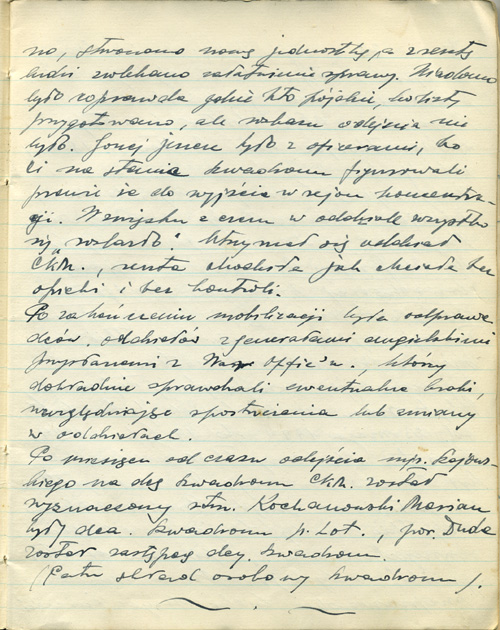 no, stworzono nową jednostkę, a z resztą
ludzi zwlekano załatwienie sprawy. Wiadomo
było coprawda gdzie kto pójdzie, bo listy
przygotowano, ale rozkazu odejścia nie
było. Gorzej jeszcze było z oficerami, bo
ci na stanie szwadronu figurowali
prawie że do wyjścia w rejon koncentra-
cji. W związku z czem w oddziale wszystko
się "rozlazło". Utrzymał się oddział
CKM., reszta chodziła jak chciała bez
opieki i bez kontroli.
Po zakończeniu mobilizacji była odprawa
dców. oddziałów z generałami angielskimi
przysłanemi z War Offic'u., którzy
dokładnie sprawdzali ewentualne braki,
uwzględniając spostrzeżenia lub zmiany
w oddziałach.
Po miesiącu od czasu odejścia mjr.
kiego na dcę szwadronu CKM. został
wyznaczony rtm. Kochanowski Marian
były dca. szwadronu p. Lot., por. Duda
został zastępcą dcy. szwadronu.
(Patrz skład osobowy szwadronu).